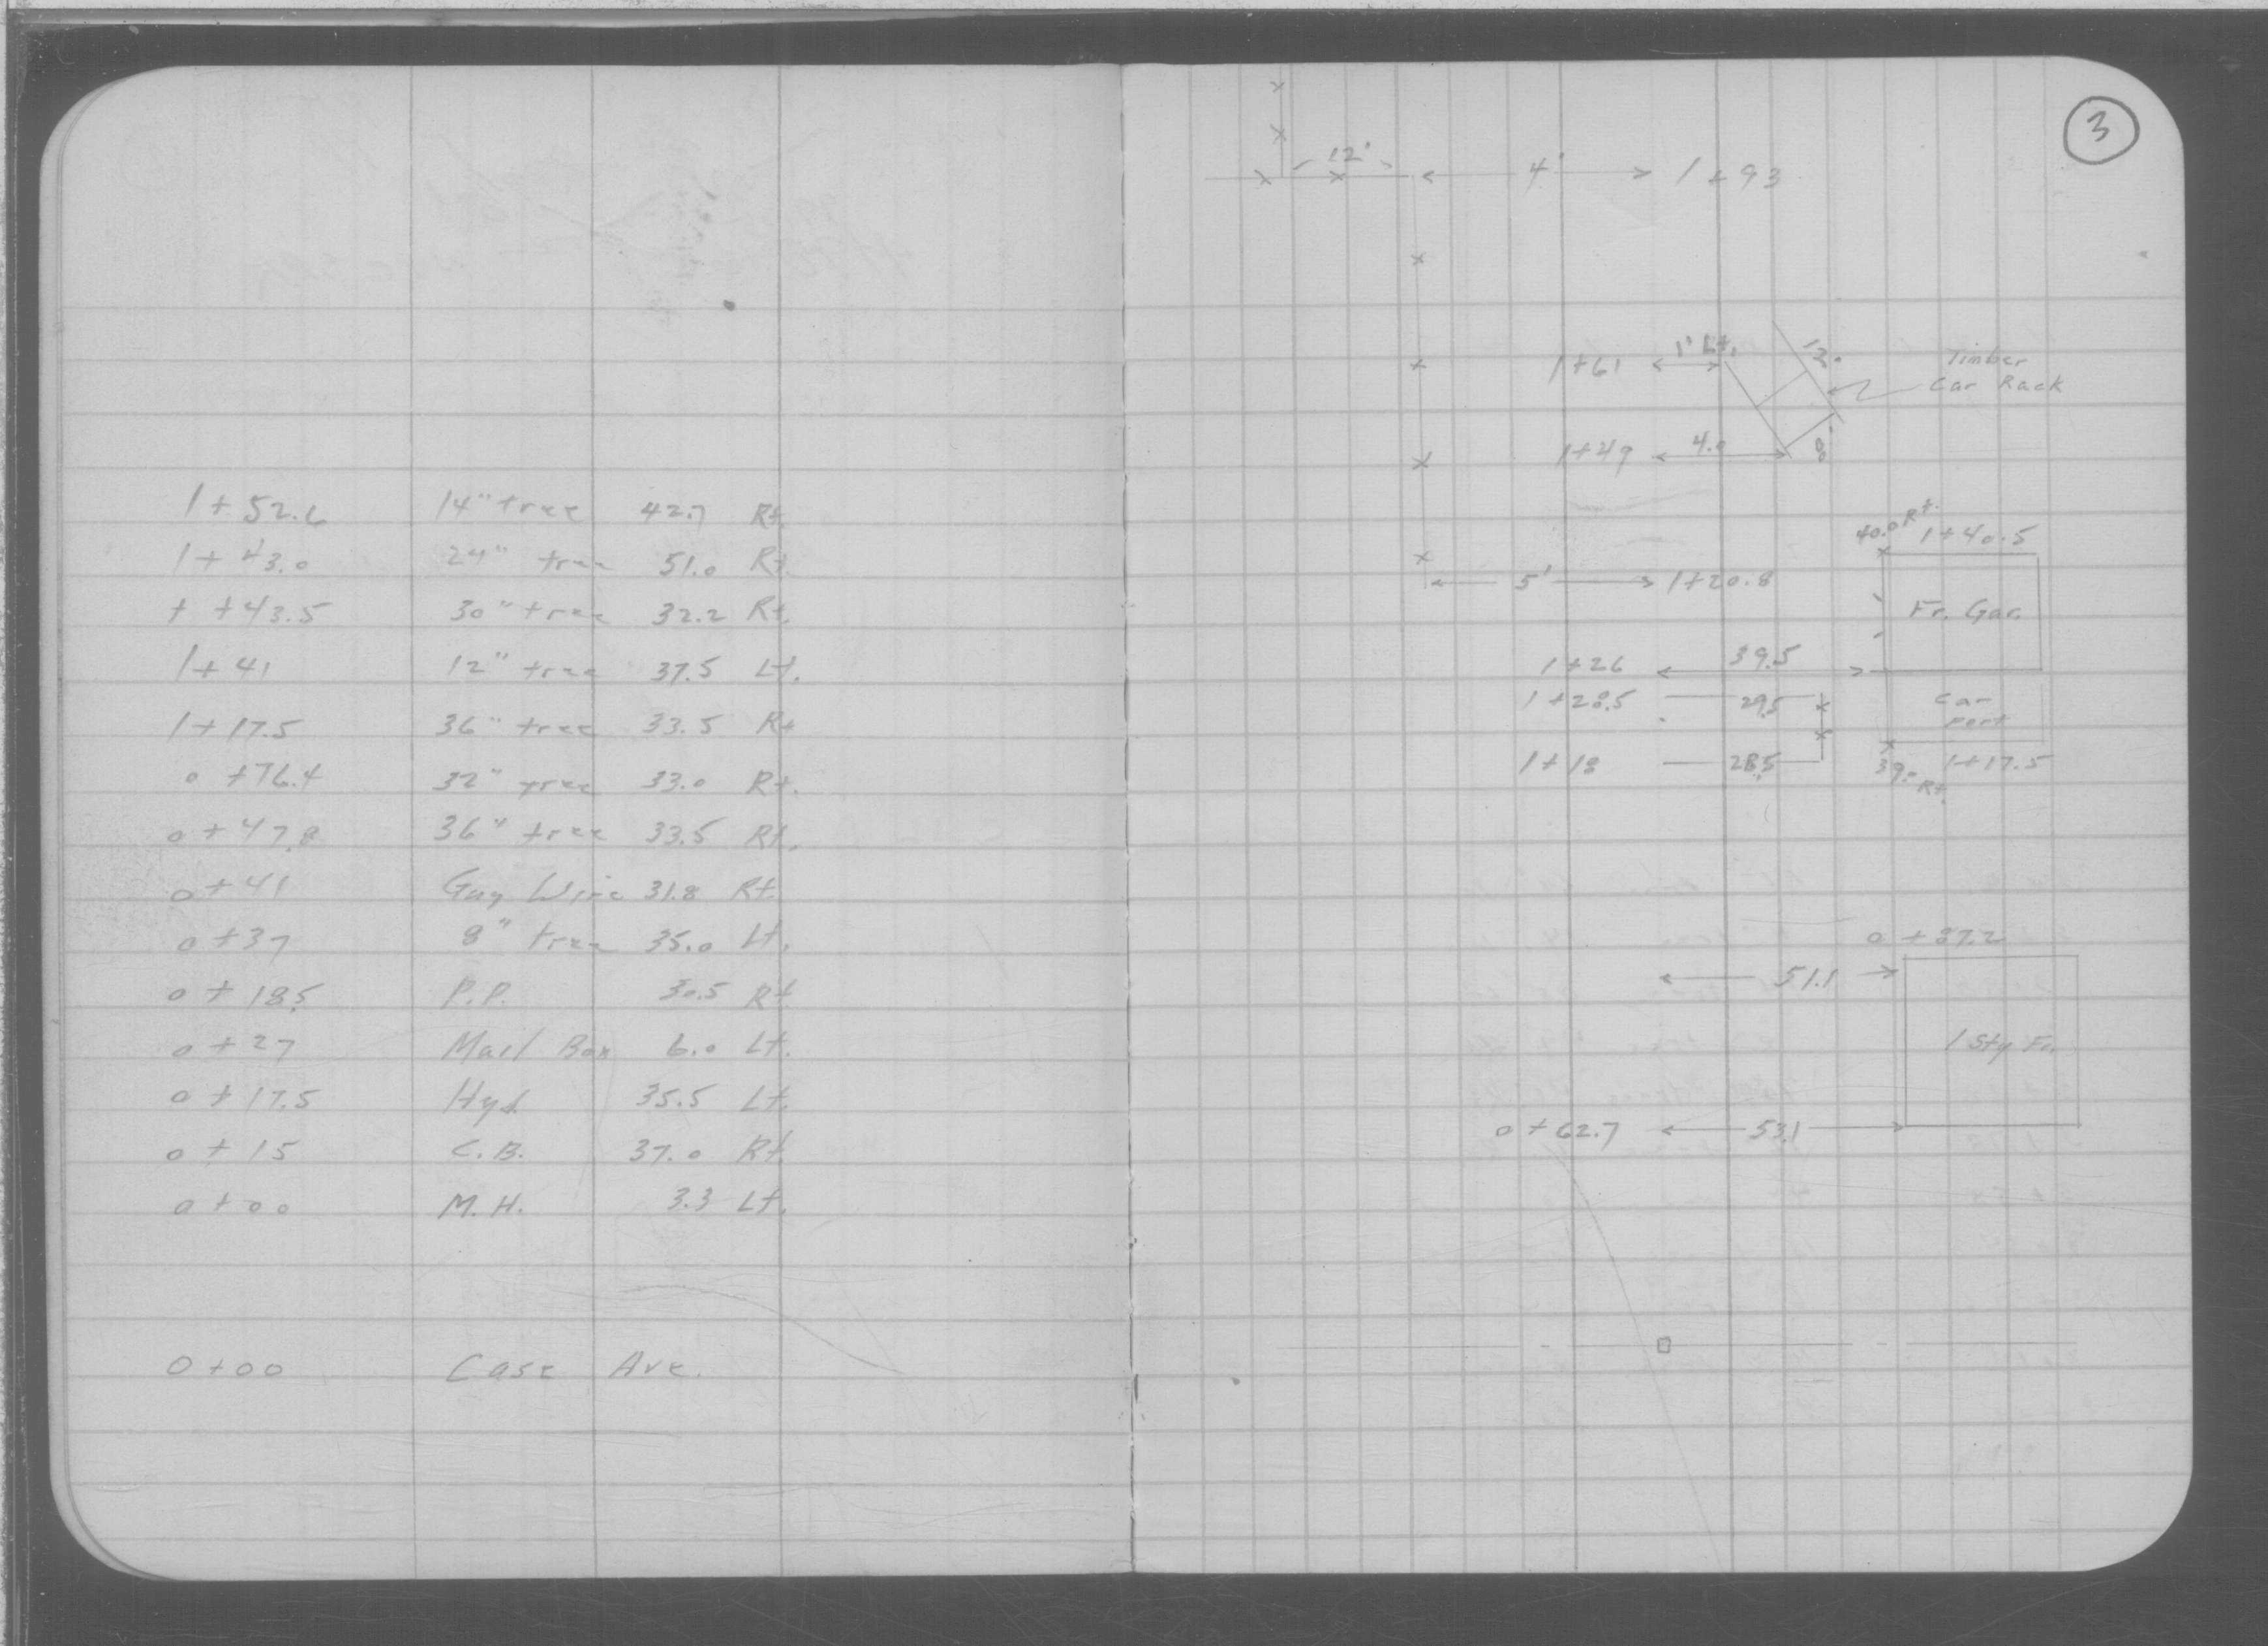 1+52.6 14" tree 42.7 Rt.
1+43.0 24" tree 51.0 Rt.
+ +43.5 30" tree 32.2 Rt.
1+41 12" tree 37.5 Lt.
1+17.5 36" tree 33.5 Rt
0+76.4 32" tree 33.0 Rt.
0+47.8 36" tree 33.5 Rt.
0+41 Guy Wire 31.8 Rt.
0+37 8" tree 35.0 Lt.
0+18.5 P.P. 30.5 Rt
0+27 Mail Box 6.0 Lt.
0+17.5 Hyd. 35.5 Lt.
0+15 C.B. 37.0 Rt.
0+00 M.H. 3.3 Lt.
0+00 Case Ave.
3
12' 4' 1+93
1+61 1' Lt. 12' Timber
Car Rack
1+49 4.0 8'
40.0 Rt. 1+40.5
5' 1+20.8
Fr. Gar.
1+26 39.5
1+28.5 29.5 Car
port
1+18 28.5 39.0 Rt. 1+17.5
0+87.2
51.1
1 Sty Fr.
0+62.7 53.1